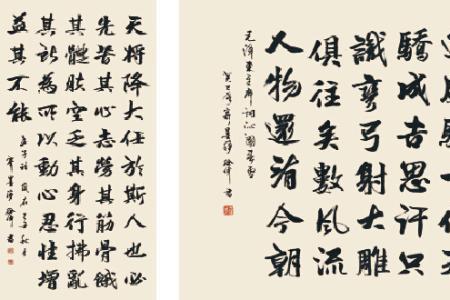 天将降大任於斯人也必
先苦其心志勞其筋骨餓
其體肤空乏其身行拂亂
其所為所以動心忍性增
益其不能
孟子語
驕成吉思汗只
識彎弓射大雕
俱往矣數風流
人物還看今朝
毛澤東主席詞沁園春雪